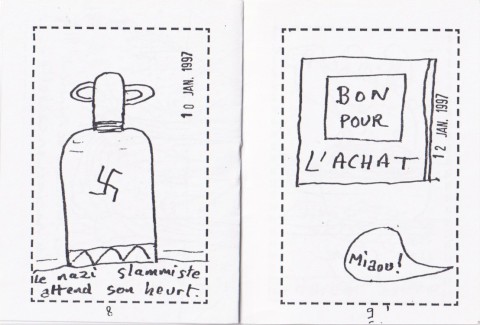 10 JAN. 1997
le nazi slammiste
attend son heurt.
8
12 JAN. 1997
BON
POUR
L'ACHAT
Miaou!
9